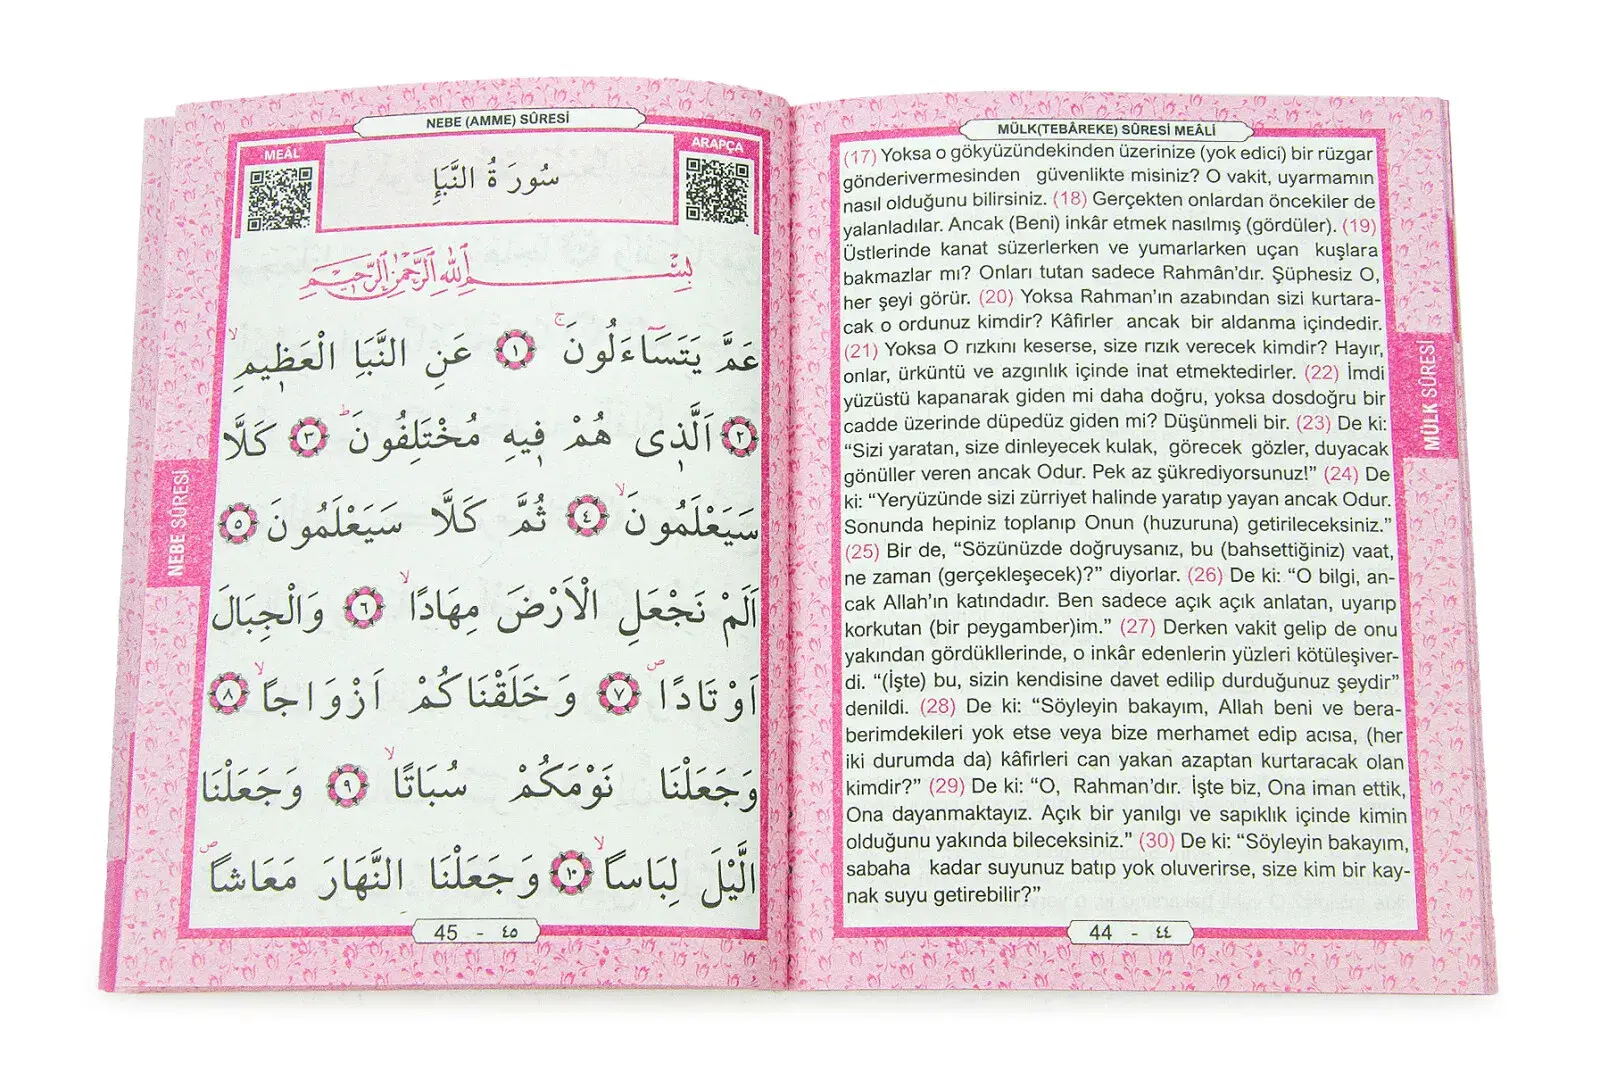 MÜLK(TEBÂREKE) SÛRESİ MEÂLİ
(17) Yoksa o gökyüzündekinden üzerinize (yok edici) bir rüzgar
gönderivermesinden güvenlikte misiniz? O vakit, uyarmamın
nasıl olduğunu bilirsiniz. (18) Gerçekten onlardan öncekiler de
yalanladılar. Ancak (Beni) inkâr etmek nasılmış (gördüler). (19)
Üstlerinde kanat süzerlerken ve yumarlarken uçan kuşlara
bakmazlar mı? Onları tutan sadece Rahmân’dır. Şüphesiz O,
her şeyi görür. (20) Yoksa Rahman’ın azabından sizi kurtara-
cak o ordunuz kimdir? Kâfirler ancak bir aldanma içindedir.
(21) Yoksa O rızkını keserse, size rızık verecek kimdir? Hayır,
onlar, ürküntü ve azgınlık içinde inat etmektedirler. (22) İmdi
yüzüstü kapanarak giden mi daha doğru, yoksa dosdoğru bir
cadde üzerinde düpedüz giden mi? Düşünmeli bir. (23) De ki:
“Sizi yaratan, size dinleyecek kulak, görecek gözler, duyacak
gönüller veren ancak Odur. Pek az şükrediyorsunuz!” (24) De
ki: “Yeryüzünde sizi zürriyet halinde yaratıp yayan ancak Odur.
Sonunda hepiniz toplanıp Onun (huzuruna) getirileceksiniz.”
(25) Bir de, “Sözünüzde doğruysanız, bu (bahsettiğiniz) vaat,
ne zaman (gerçekleşecek)?” diyorlar. (26) De ki: “O bilgi, an-
cak Allah’ın katındadır. Ben sadece açık açık anlatan, uyarıp
korkutan (bir peygamber)im.” (27) Derken vakit gelip de onu
yakından gördükllerinde, o inkâr edenlerin yüzleri kötüleşiver-
di. “(İşte) bu, sizin kendisine davet edilip durduğunuz şeydir”
denildi. (28) De ki: “Söyleyin bakayım, Allah beni ve bera-
berimdekileri yok etse veya bize merhamet edip acısa, (her
iki durumda da) kâfirleri can yakan azaptan kurtaracak olan
kimdir?” (29) De ki: “O, Rahman’dır. İşte biz, Ona iman ettik,
Ona dayanmaktayız. Açık bir yanılgı ve sapıklık içinde kimin
olduğunu yakında bileceksiniz.” (30) De ki: “Söyleyin bakayım,
sabaha kadar suyunuz batıp yok oluverirse, size kim bir kay-
nak suyu getirebilir?”
44 - ٤٤
MÜLK SÛRESİ
NEBE (AMME) SÛRESİ
MEÂL
ARAPÇA
سُورَةُ النَّبَأِ
بِسْمِ اللّٰهِ الرَّحْمٰنِ الرَّحِيمِ
عَمَّ يَتَسَآءَلُونَۚ ﴿١﴾ عَنِ النَّبَأِ الْعَظ۪يمِۙ
﴿٢﴾ اَلَّذ۪ى هُمْ ف۪يهِ مُخْتَلِفُونَۜ ﴿٣﴾ كَلَّا
سَيَعْلَمُونَۙ ﴿٤﴾ ثُمَّ كَلَّا سَيَعْلَمُونَ ﴿٥﴾
اَلَمْ نَجْعَلِ الْاَرْضَ مِهَادًاۙ ﴿٦﴾ وَالْجِبَالَ
اَوْتَادًاۖ ﴿٧﴾ وَخَلَقْنَاكُمْ اَزْوَاجًاۙ ﴿٨﴾
وَجَعَلْنَا نَوْمَكُمْ سُبَاتًاۙ ﴿٩﴾ وَجَعَلْنَا
الَّيْلَ لِبَاسًاۙ ﴿١٠﴾ وَجَعَلْنَا النَّهَارَ مَعَاشًاۖ
45 - ٤٥
NEBE SÛRESİ